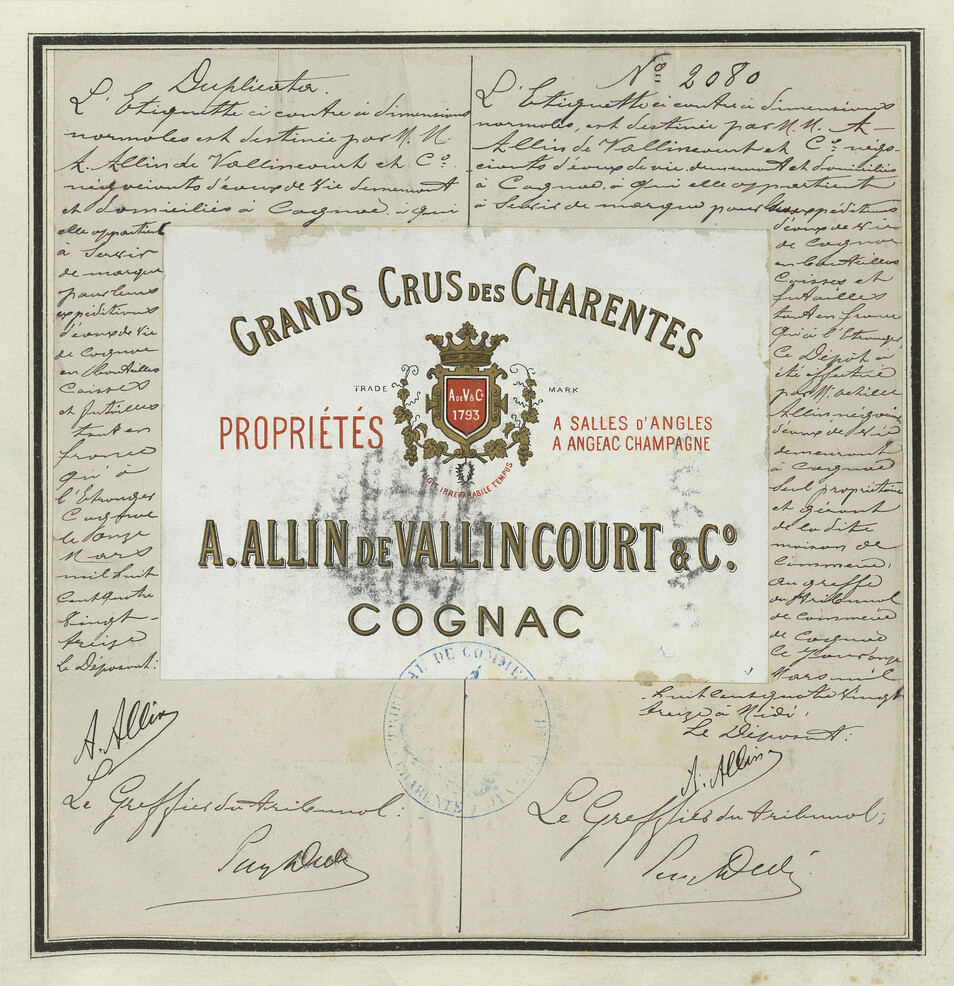 Duplicata.
L'Etiquette ci contre à dimensions
normales est destinée par M. M.
A. Allin de Vallincourt et Cº.
négociants d'eaux de vie demeurant
et domiciliés à Cognac, à qui
elle appartient
à Servir
de marque
pour leurs
expéditions
d'eaux de Vie
de Cognac
en Bouteilles
Caisses
et futailles
tant en
france
qu'à
l'Etranger
Cognac
le onze
Mars
mil huit
cent quatre
Vingt-
treize
Le Déposant:
A. Allin
Le Greffier du tribunal:
Nº 2080
L'Etiquette ci contre à dimensions
normales, est destinée par M. M. A-
Allin de Vallincourt et Cº négo-
ciants d'eaux de vie, demeurant et domiciliés
à Cognac, à qui elle appartient
à Servir de marque pour leurs expéditions
d'eaux de Vie
de Cognac
en bouteilles
Caisses et
futailles
tant en france
qu'à l'Etranger,
Ce Dépôt a
été effectué
par Mr Achille
Allin négociant
d'eaux de Vie
demeurant
à Cognac
Seul propriétaire
et gérant
de la dite
maison de
Commerce,
au greffe
du tribunal
de Commerce
de Cognac
le onze
Mars mil
huit cent quatre vingt
treize à Midi,
Le Déposant:
A. Allin
Le Greffier du tribunal;
GRANDS CRUS DES CHARENTES
TRADE MARK
A DE V & Cº
1793
PROPRIÉTÉS
A SALLES D'ANGLES
A ANGEAC CHAMPAGNE
IRREPARABILE TEMPUS
A. ALLIN DE VALLINCOURT & Cº.
COGNAC
DE COMMERCE
CHARENTE